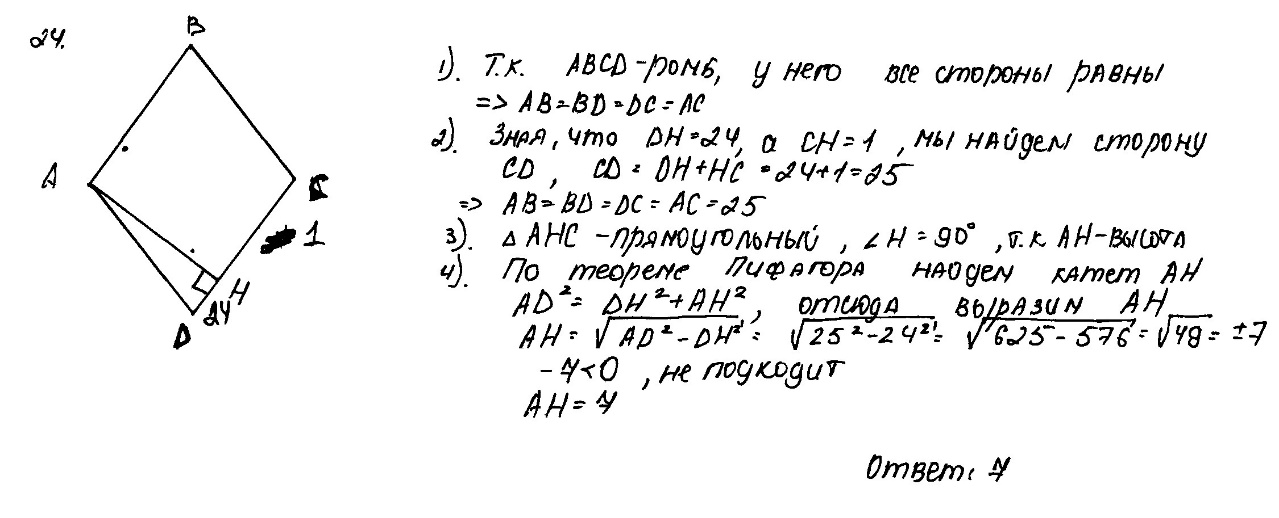 24.
B
A
C
1
H
24
D
1). Т.к. ABCD-ромб, у него все стороны равны
=> AB=BD=DC=AC
2). Зная, что DH=24, а CH=1, мы найдем сторону
CD, CD = DH+HC = 24+1=25
=> AB=BD=DC=AC=25
3). △AHC -прямоугольный, ∠H=90°, т.к AH-высота
4). По теореме Пифагора найдем катет AH
AD²=DH²+AH², отсюда выразим AH
AH=√AD²-DH² = √25²-24² = √625-576 = √49 = ±7
-7<0, не подходит
AH=7
Ответ: 7